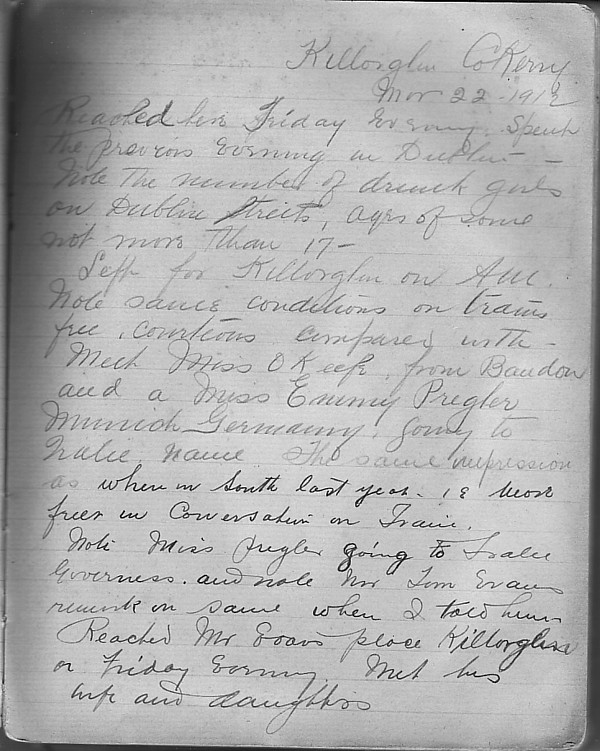 Killorglin Co Kerry
Nov 22-1912
Reached here Friday Evening. Spent
the previous Evening in Dublin -
Note the number of drunk girls
on Dublin Streets, ages of some
not more than 17-
Left for Killorglin on AM.
Note same conditions on trains
free, courtious compared with -
Meet Miss O Keefe, from Bandon
and a Miss Emmy Pregler
Munich Germany, going to
Tralee. Name The same impression
as when in South last year. i e more
freer in Conversation on Train.
Note Miss Pregler going to Tralee
Governess. and note Mr Tom Evans
remark on same when I told him
Reached Mr Evans place Killorglin
on Friday Evening. Met his
wife and daughters